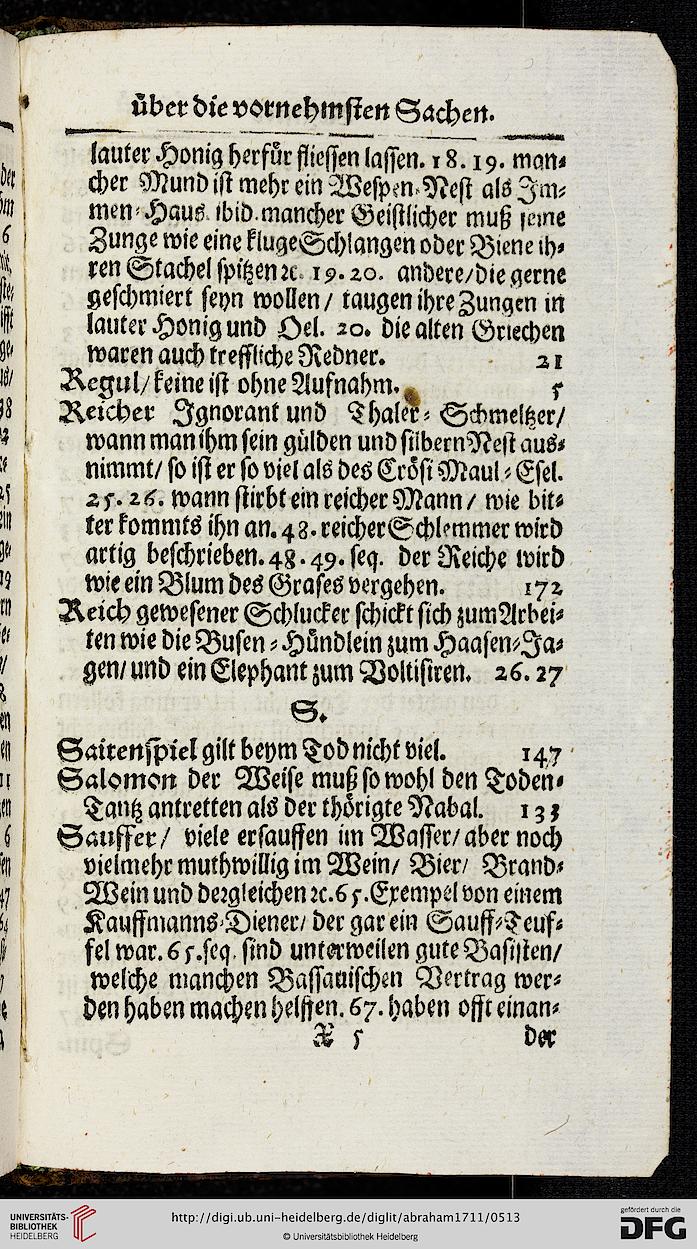 über die vornehmsten Sachen.
lauter Honig herfür fliessen lassen. 18. 19. man⸗
cher Mund ist mehr ein Wespen⸗Nest als Im⸗
men⸗Haus. ibid. mancher Geistlicher muß seine
Zunge wie eine kluge Schlangen oder Biene ih⸗
ren Stachel spitzen ꝛc. 19. 20. andere/die gerne
geschmiert seyn wollen / taugen ihre Zungen in
lauter Honig und Oel. 20. die alten Griechen
waren auch treffliche Redner. 21
Regul/ keine ist ohne Aufnahm. 5
Reicher Ignorant und Thaler⸗Schmeltzer/
wann man ihm sein gülden und silbern Nest aus⸗
nimmt/ so ist er so viel als des Crösi Maul⸗Esel.
25. 26. wann stirbt ein reicher Mann / wie bit⸗
ter kommts ihn an. 48. reicher Schlemmer wird
artig beschrieben. 48. 49. seq. der Reiche wird
wie ein Blum des Grases vergehen. 172
Reich gewesener Schlucker schickt sich zum Arbei⸗
ten wie die Busen⸗Hündlein zum Haasen⸗Ja⸗
gen/ und ein Elephant zum Voltisiren. 26. 27
S.
Saitenspiel gilt beym Tod nicht viel. 147
Salomon der Weise muß so wohl den Toden⸗
Tantz antretten als der thörigte Nabal. 133
Sauffer/ viele ersauffen im Wasser/ aber noch
vielmehr muthwillig im Wein/ Bier/ Brand⸗
Wein und dergleichen ꝛc. 65. Exempel von einem
Kauffmanns⸗Diener/ der gar ein Sauff⸗Teuf⸗
fel war. 65. seq. sind unterweilen gute Basisten/
welche manchen Bassauischen Vertrag wer⸗
den haben machen helffen. 67. haben offt einan⸗
X 5 der
UNIVERSITÄTS-
BIBLIOTHEK
HEIDELBERG
http://digi.ub.uni-heidelberg.de/diglit/abraham1711/0513
© Universitätsbibliothek Heidelberg
gefördert durch die
DFG